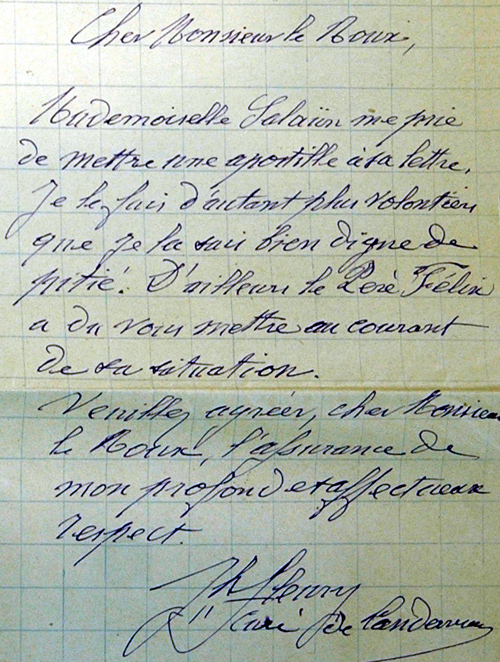 Cher Monsieur le Roux,
Mademoiselle Salaün me prie
de mettre une apostille à sa lettre.
Je le fais d'autant plus volontiers
que je la sais bien digne de
pitié. D'ailleurs le Père Félix
a du vous mettre au courant
de sa situation.
Veuillez agréer, cher Monsieur
le Roux, l'assurance de
mon profond et affectueux
respect.
Fleury
Curé de Landerneau